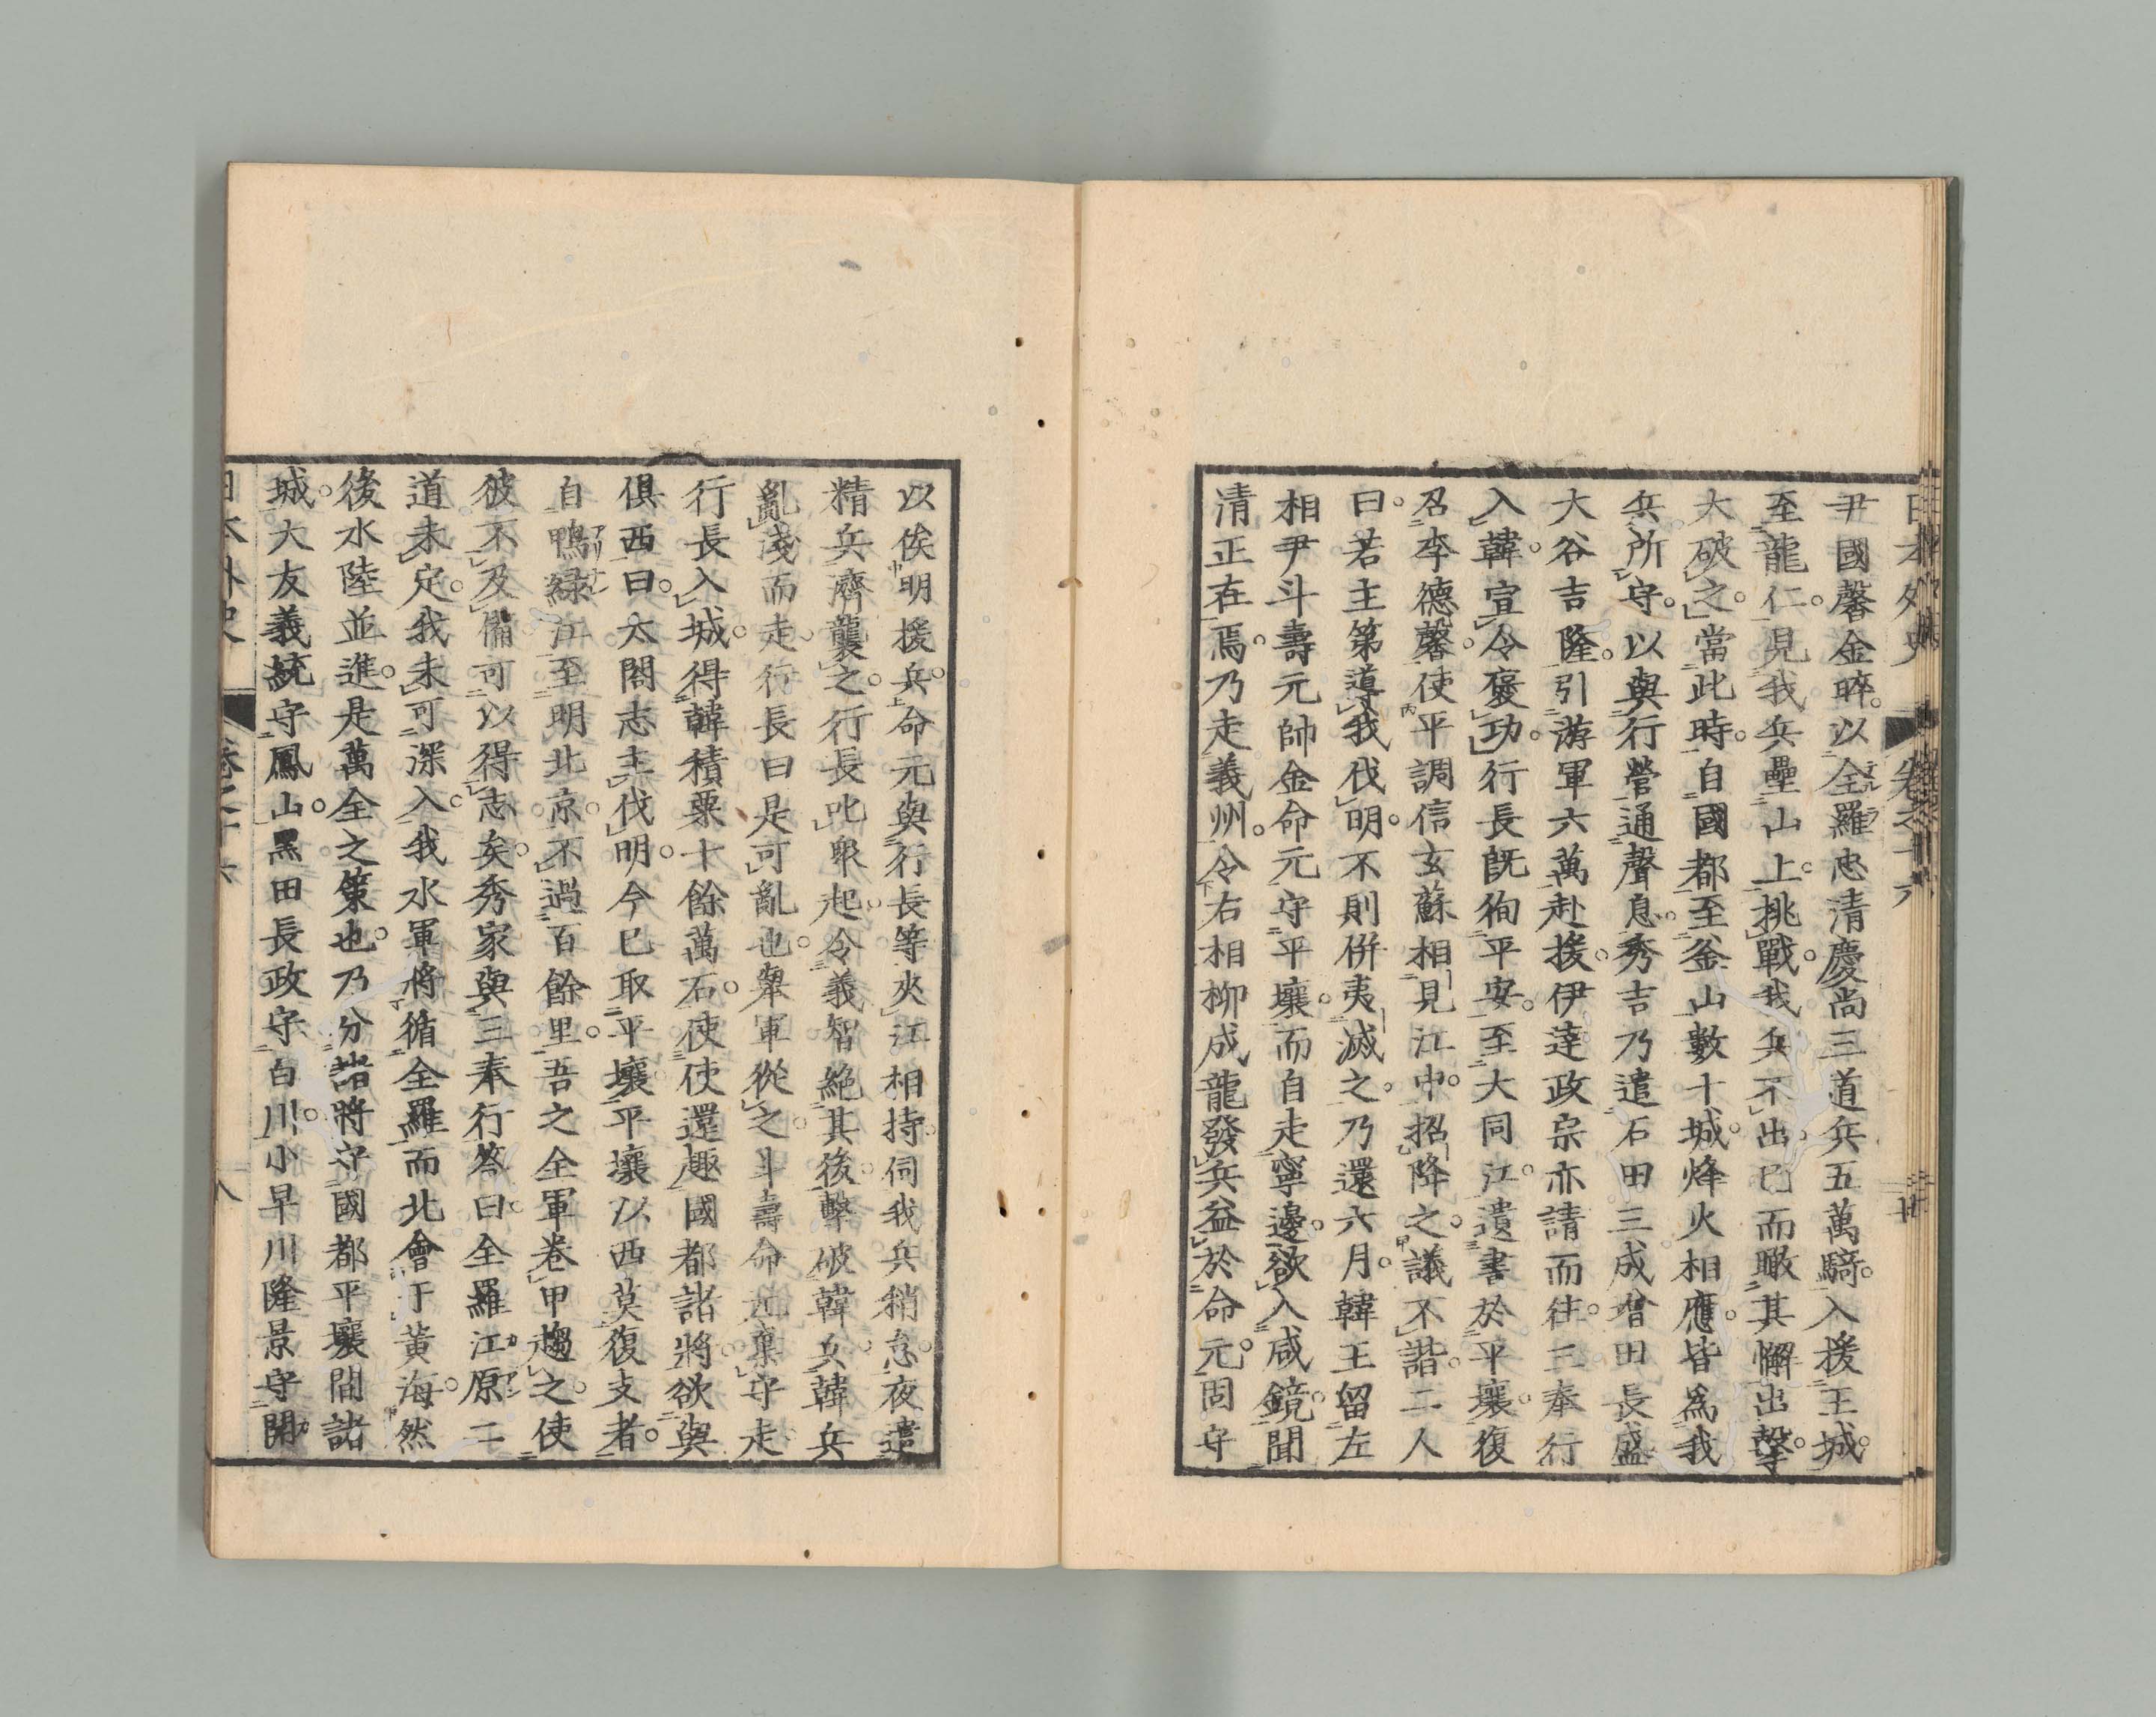 日本外史 卷之十六
尹國馨金睟以全羅忠清慶尚三道兵五萬騎入援王城
至龍仁見我兵壘山上挑戰我兵不出已而瞰其懈出擊
大破之當此時自國都至釜山數十城烽火相應皆爲我
兵所守以與行營通聲息秀吉乃遣石田三成增田長盛
大谷吉隆引游軍六萬赴援伊達政宗亦請而往三奉行
入韓宣令褒功行長既徇平安至大同江遺書於平壤復
召李德馨使平調信玄蘇相見江中招降之議不諧二人
曰若主第導我伐明不則併夷滅之乃還六月韓王留左
相尹斗壽元帥金命元守平壤而自走寧邊欲入咸鏡聞
清正在焉乃走義州令右相柳成龍發兵益於命元固守
以俟明援兵命元與行長等夾江相持伺我兵稍怠夜遣
精兵濟襲之行長叱衆起令義智絶其後擊破韓兵韓兵
亂淺而走行長曰是可亂也舉軍從之斗壽命元棄守走
行長入城得韓積粟十餘萬石使使還趣國都諸將欲與
俱西曰太閤志主伐明今已取平壤平壤以西莫復支者
自鴨緑江至明北京不過百餘里吾之全軍卷甲趨之使
彼不及備可以得志矣秀家與三奉行答曰全羅江原二
道未定我未可深入我水軍將循全羅而北會于黃海然
後水陸並進是萬全之策也乃分諸將守國都平壤間諸
城大友義統守鳳山黑田長政守白川小早川隆景守開
日本外史 卷之十六